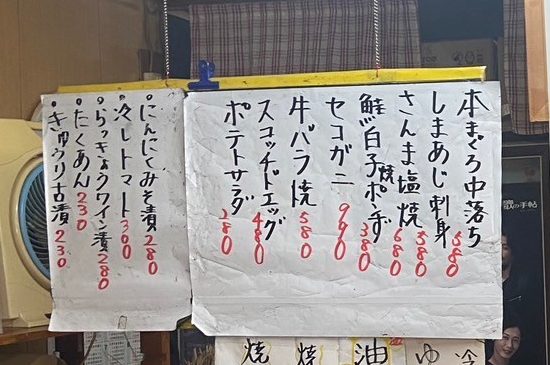 本まぐろ中落ち 580
しまあじ刺身 580
さんま塩焼 680
鮭白子焼ポンず 380
セコガニ 990
牛バラ焼 580
スコッチドエッグ 480
ポテトサラダ 280
・にんにくみそ漬 280
・冷しトマト 300
・らっきょうワイン漬 280
・たくあん 230
・きゅうり古漬 230
冷
ゆ
油
焼
焼
の手帖